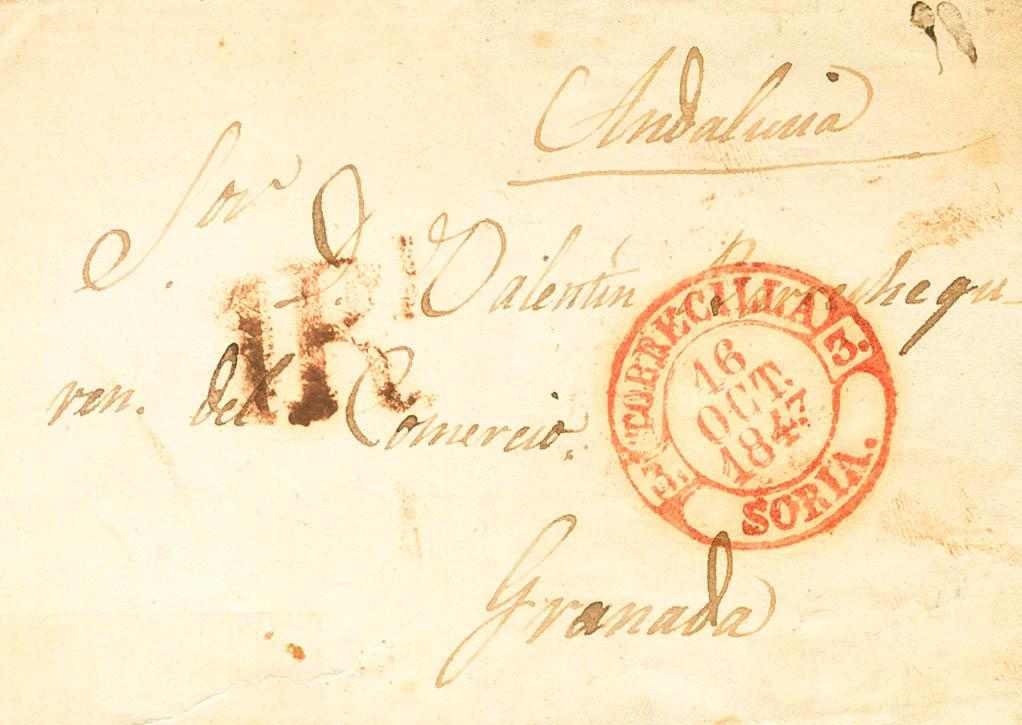 Andalucia
Sor. D. Valentin
del Comercio.
Granada
1R
E. TORRECILLA 3.
16
OCT.
1847
SORIA.